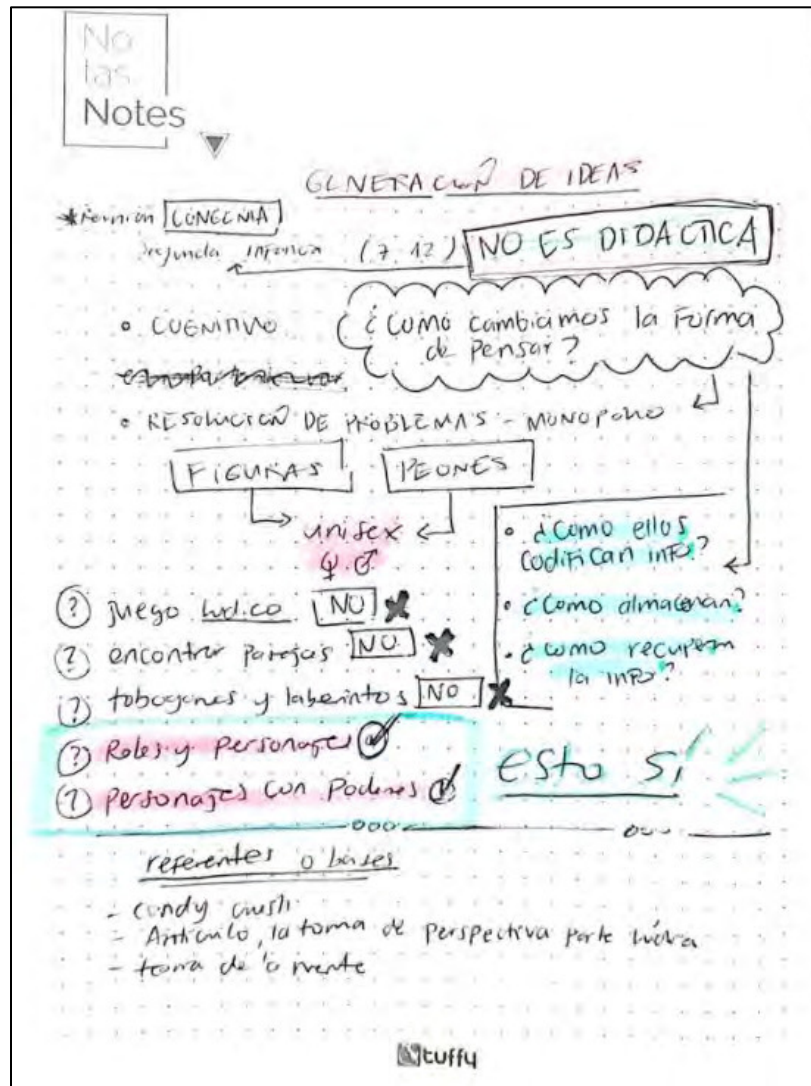 No
las
Notes
GENERACIÓN DE IDEAS
*Reunión
segunda infancia (7-12) NO ES DIDACTICA
• COGNITIVO
¿Como cambiamos la Forma
de Pensar?
• RESOLUCIÓN DE PROBLEMAS - MONOPOLIO
FIGURAS PEONES
unisex
♀ ♂
• ¿Como ellos
Codifican info?
• ¿Como almacenan?
• ¿Como recuperan
la info?
? juego ludico NO
? encontrar parejas NO
? toboganes y laberintos NO
? Roles y personajes
? personajes con Poderes
esto Si
referentes o bases
- Candy crush
- Articulo, la toma de perspectiva parte
- teoria de la mente
tuffy